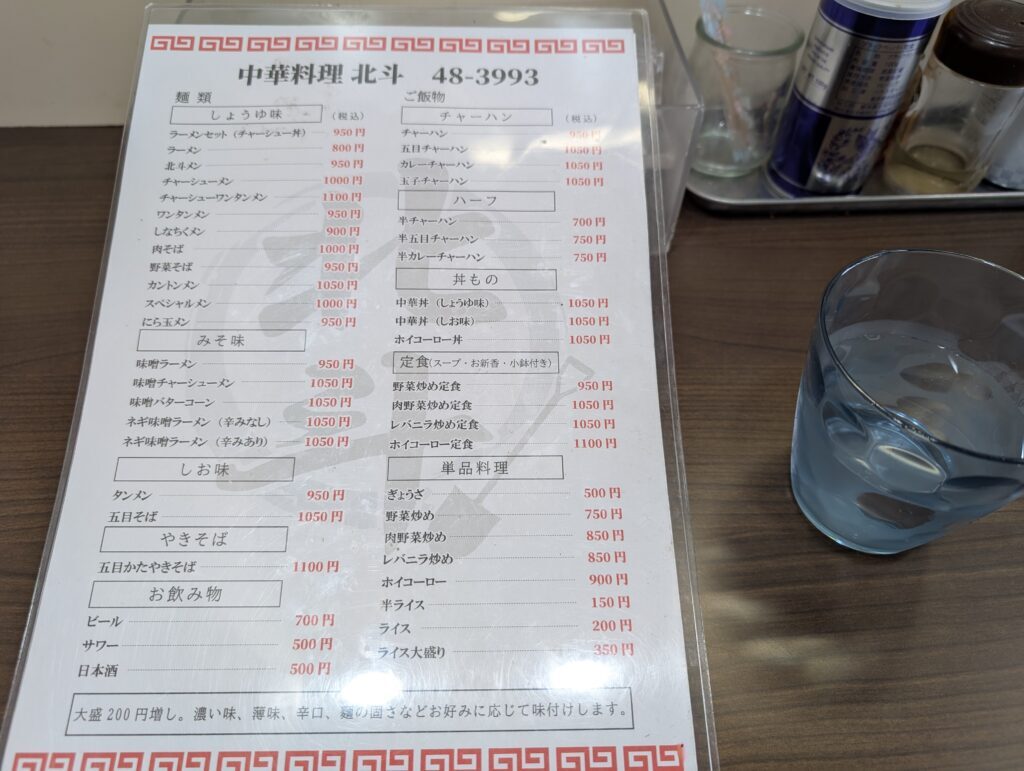 中華料理 北斗 48-3993
麺 類
しょうゆ味 (税込)
ラーメンセット (チャーシュー丼) 950円
ラーメン 800円
北斗メン 950円
チャーシューメン 1000円
チャーシューワンタンメン 1100円
ワンタンメン 950円
しなちくメン 900円
肉そば 1000円
野菜そば 950円
カントンメン 1050円
スペシャルメン 1000円
にら玉メン 950円
みそ味
味噌ラーメン 950円
味噌チャーシューメン 1050円
味噌バターコーン 1050円
ネギ味噌ラーメン (辛みなし) 1050円
ネギ味噌ラーメン (辛みあり) 1050円
しお味
タンメン 950円
五目そば 1050円
やきそば
五目かたやきそば 1100円
お飲み物
ビール 700円
サワー 500円
日本酒 500円
ご飯物
チャーハン (税込)
チャーハン 950円
五目チャーハン 1050円
カレーチャーハン 1050円
玉子チャーハン 1050円
ハーフ
半チャーハン 700円
半五目チャーハン 750円
半カレーチャーハン 750円
丼もの
中華丼 (しょうゆ味) 1050円
中華丼 (しお味) 1050円
ホイコーロー丼 1050円
定食(スープ・お新香・小鉢付き)
野菜炒め定食 950円
肉野菜炒め定食 1050円
レバニラ炒め定食 1050円
ホイコーロー定食 1100円
単品料理
ぎょうざ 500円
野菜炒め 750円
肉野菜炒め 850円
レバニラ炒め 850円
ホイコーロー 900円
半ライス 150円
ライス 200円
ライス大盛り 350円
大盛200円増し。濃い味、薄味、辛口、麺の固さなどお好みに応じて味付けします。